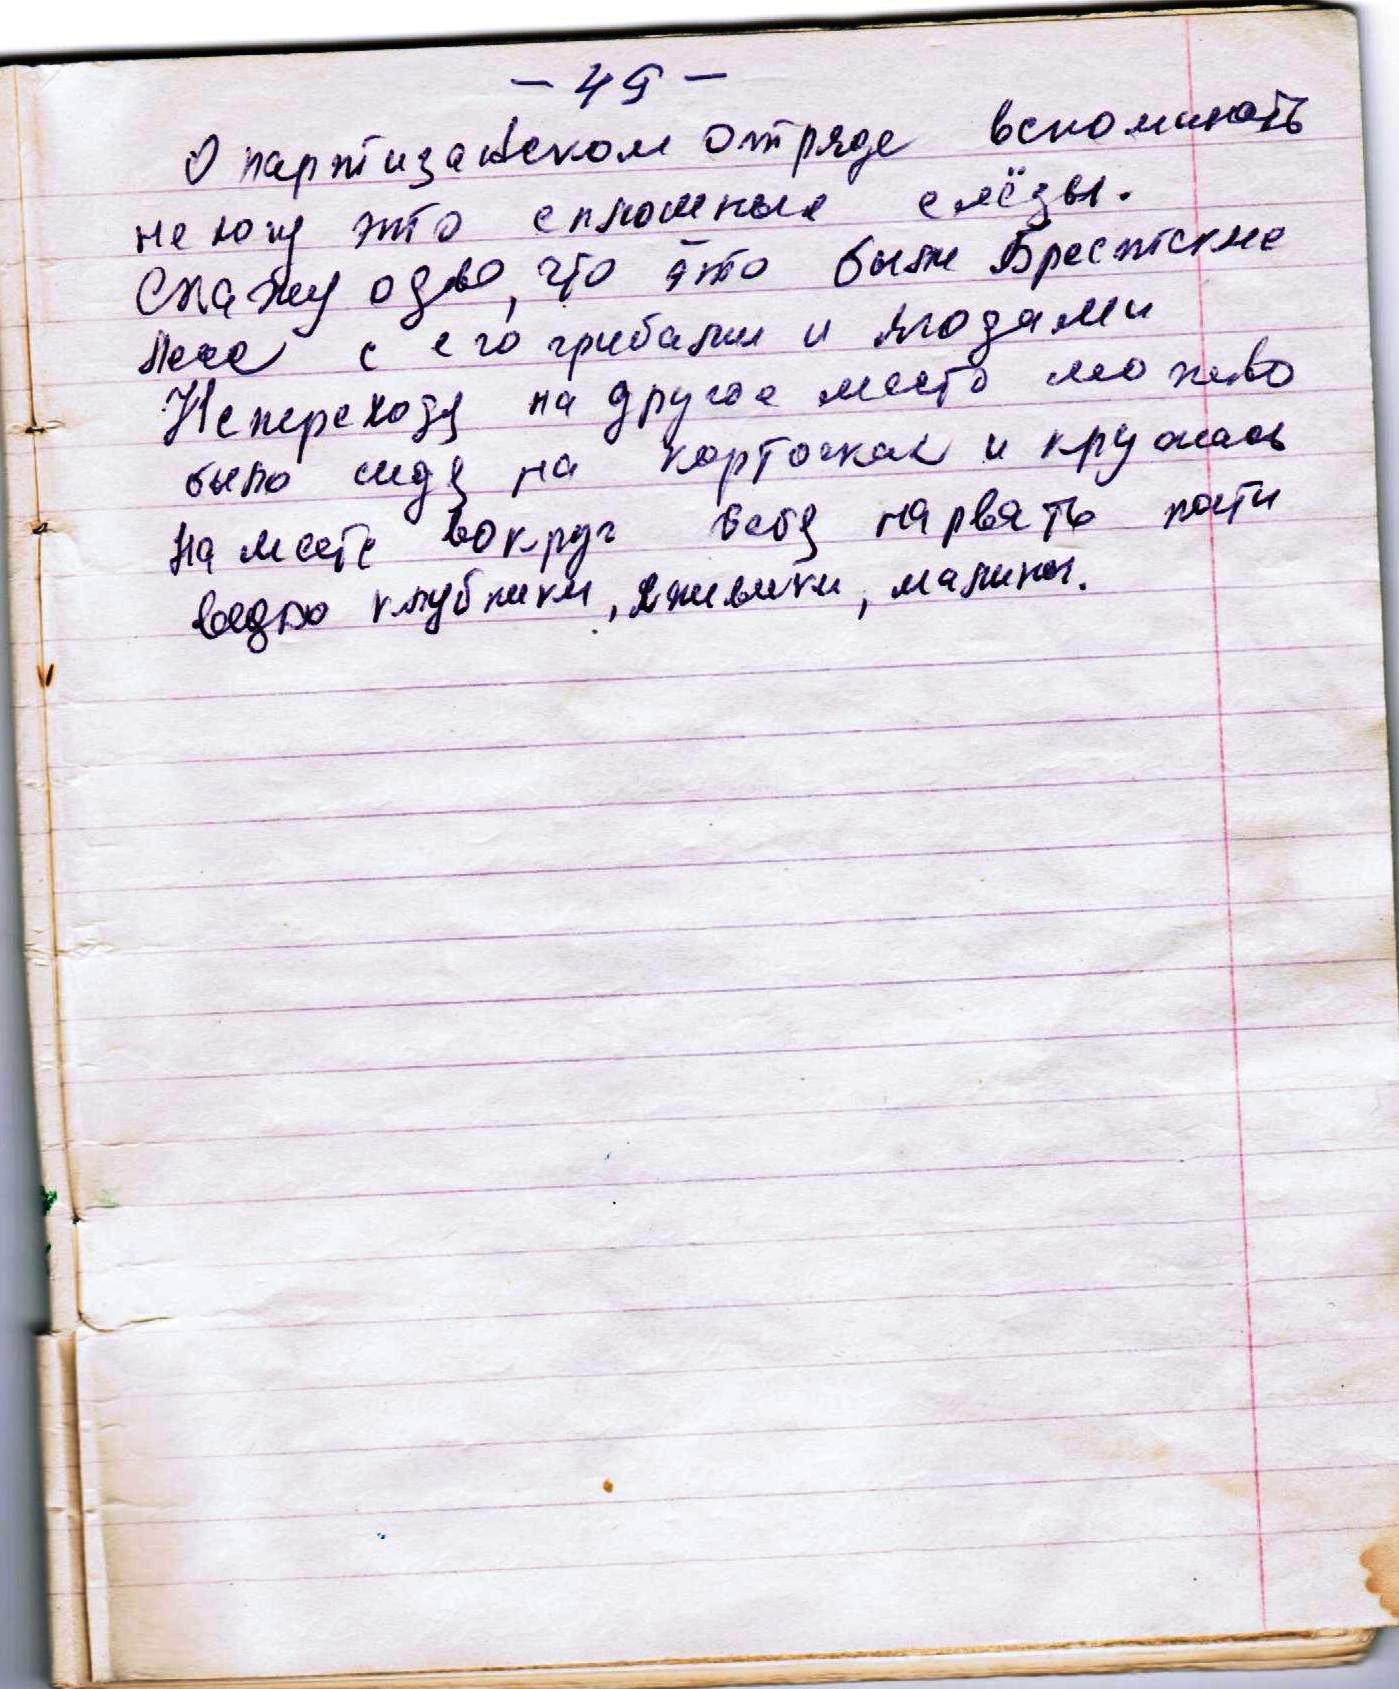 - 45 -
О партизанском отряде вспоминать
не хочу это сплошные слёзы.
Скажу одно, что это были Брестские
леса с его грибами и ягодами
Не переходя на другое место можно
было сидя на корточках и кружась
на месте вокруг себя нарвать почти
ведро клубники, ежевики, малины.